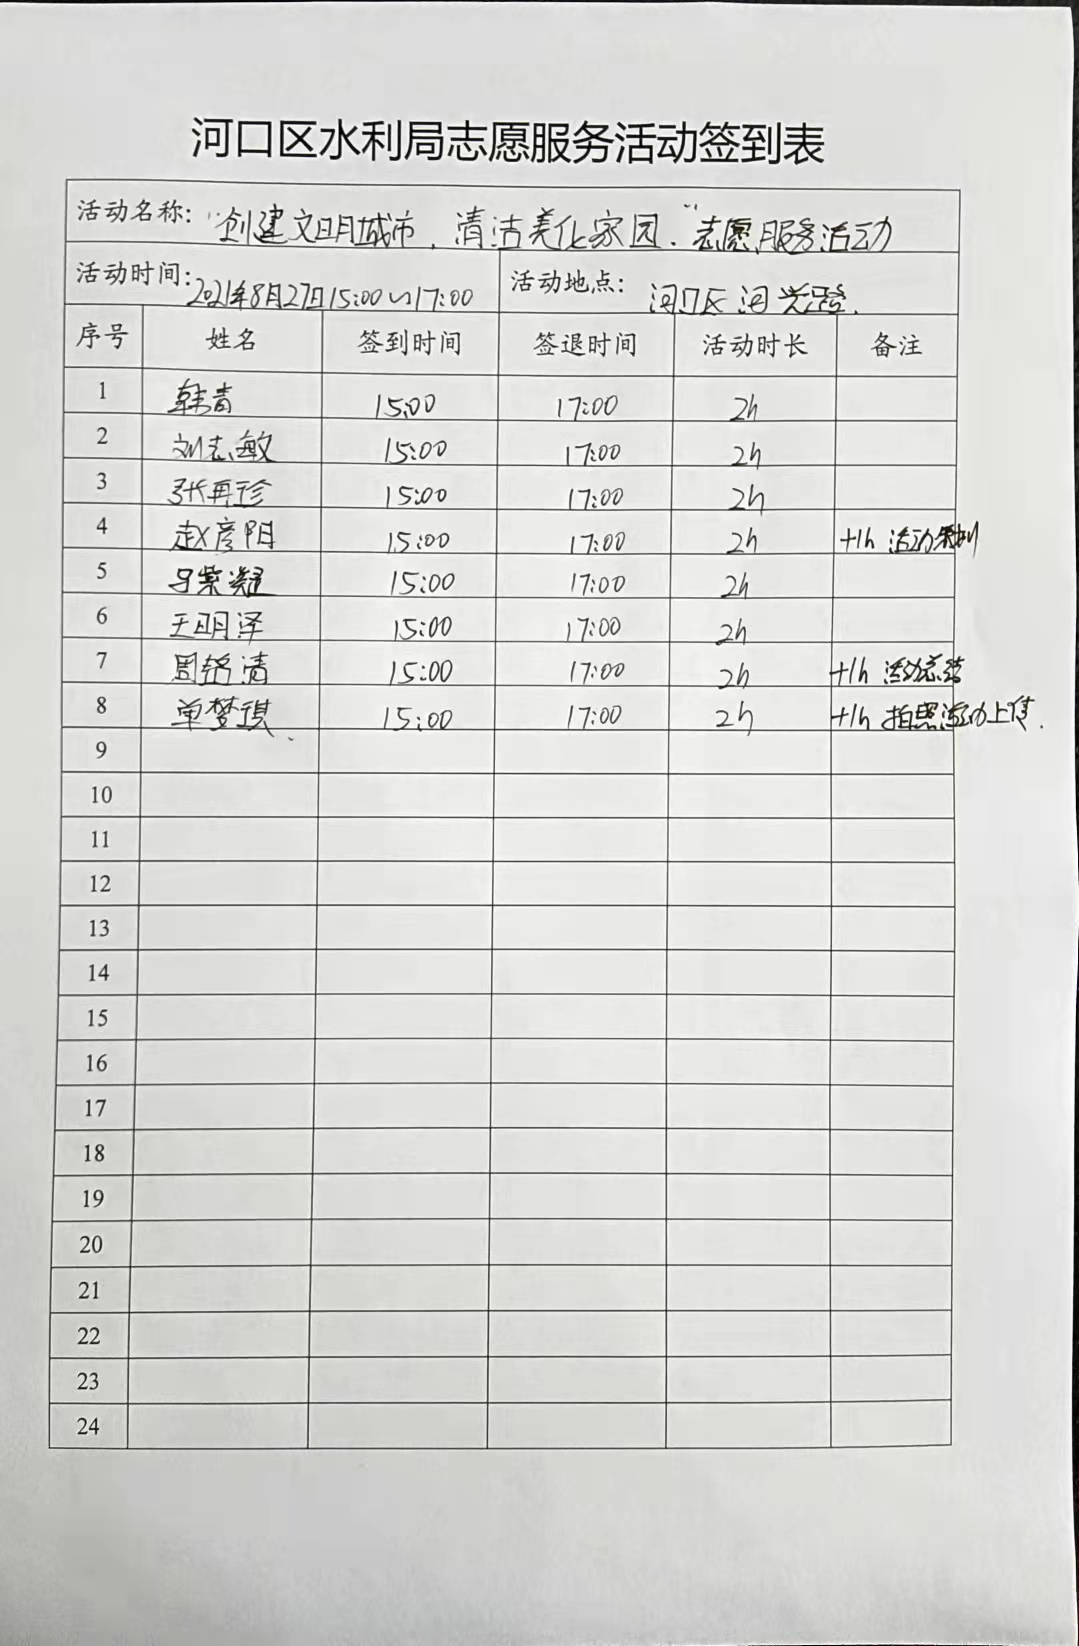 河口区水利局志愿服务活动签到表
活动名称: "创建文明城市,清洁美化家园"志愿服务活动
活动时间: 2021年8月27日15:00~17:00 活动地点: 河口区河兴路.
序号 姓名 签到时间 签退时间 活动时长 备注
1 韩青 15:00 17:00 2h
2 刘志敏 15:00 17:00 2h
3 张再珍 15:00 17:00 2h
4 赵彦阳 15:00 17:00 2h +1h 活动策划
5 马紫凝 15:00 17:00 2h
6 王明泽 15:00 17:00 2h
7 周铭清 15:00 17:00 2h +1h 活动总结
8 单梦琪 15:00 17:00 2h +1h 拍照活动上传.
9
10
11
12
13
14
15
16
17
18
19
20
21
22
23
24